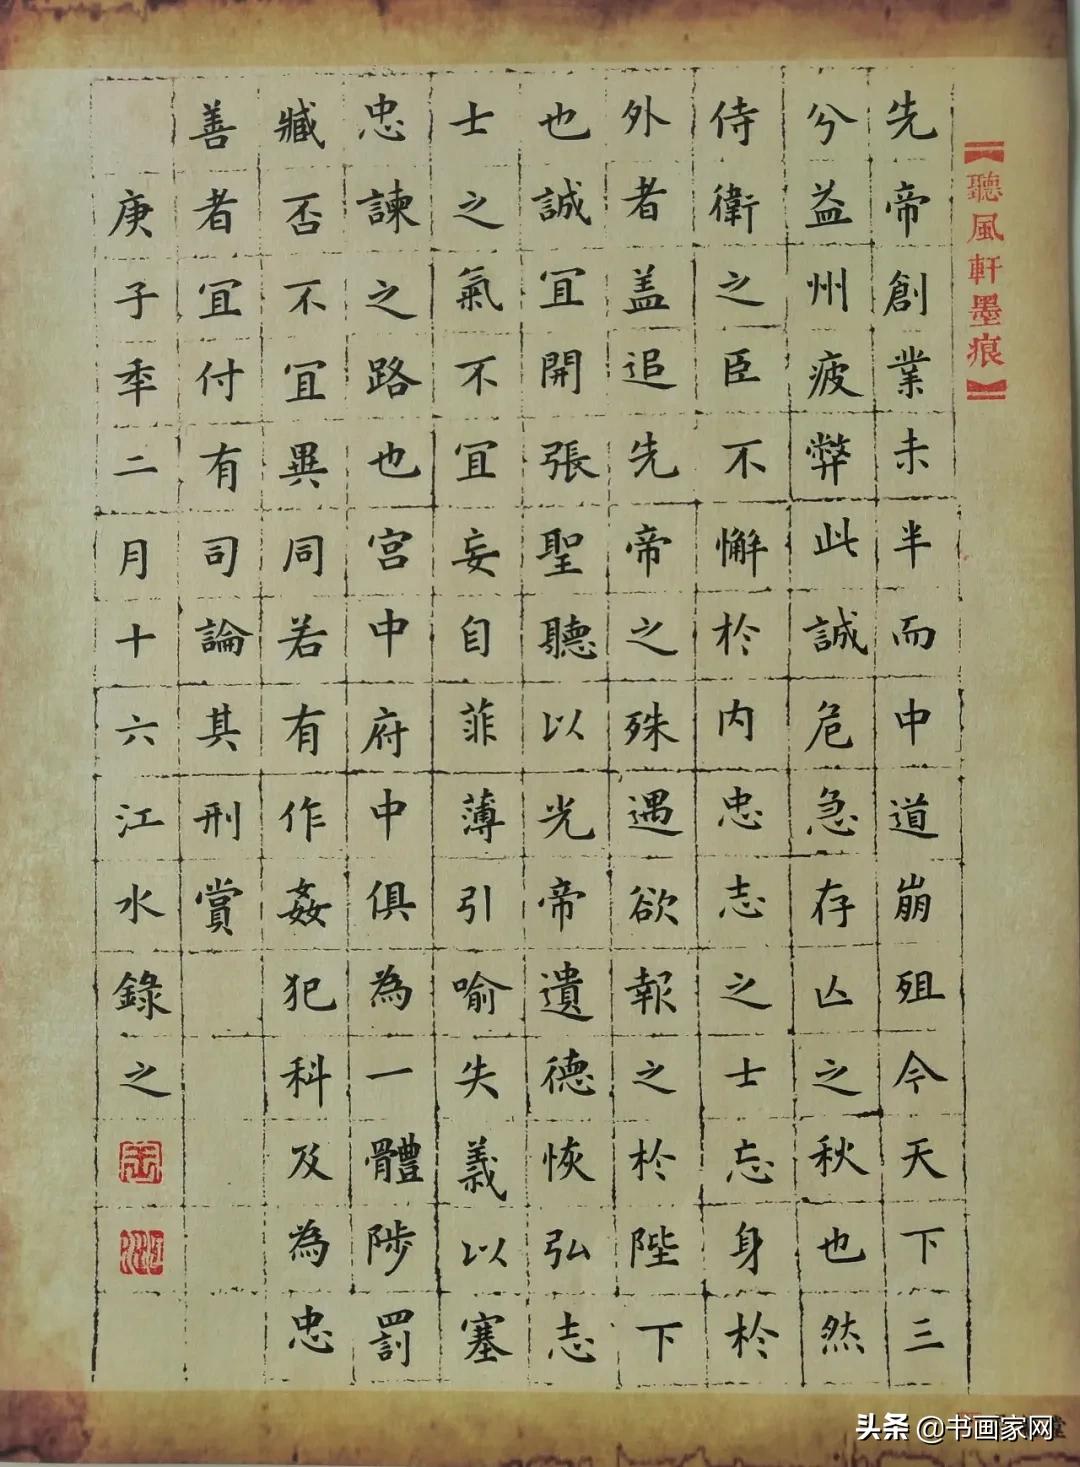 【聽風軒墨痕】
先帝創業未半而中道崩殂今天下三
兮益州疲弊此誠危急存亾之秋也然
侍衛之臣不懈於内忠志之士忘身於
外者盖追先帝之殊遇欲報之於陛下
也誠冝開張聖聽以光帝遺德恢弘志
士之氣不冝妄自菲薄引喻失義以塞
忠諫之路也宫中府中俱為一體陟罰
臧否不冝異同若有作姦犯科及為忠
善者冝付有司論其刑賞
庚子年二月十六江水錄之
头条 @书画家网